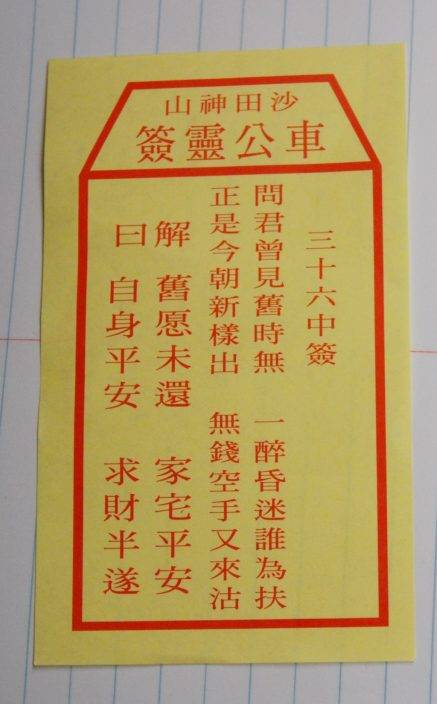 沙田神山
車公靈簽
三十六中簽
問君曾見舊時無 一醉昏迷誰為扶
正是今朝新樣出 無錢空手又來沽
解 舊愿未還 家宅平安
曰 自身平安 求財半遂